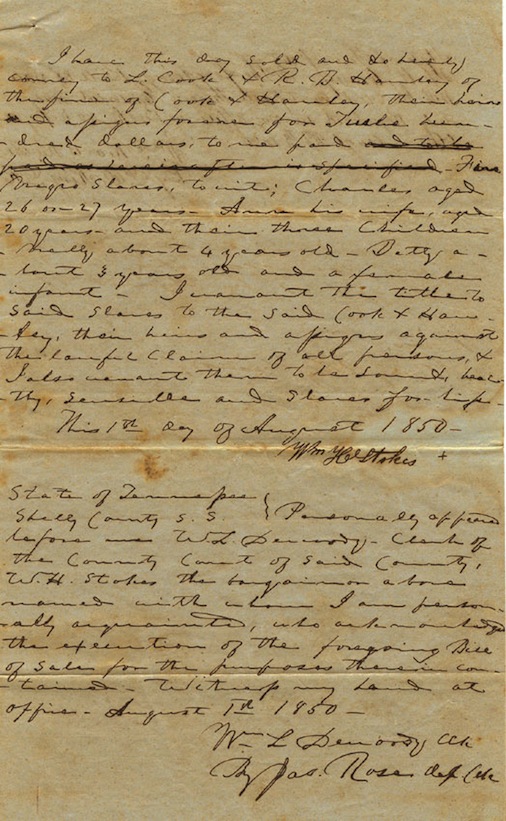 I have this day sold and do hereby
convey to L. Cook & R. B. Hawley of
the firm of Cook & Hawley, their heirs
and assigns forever for Twelve hun-
-dred dollars, to me paid
Five
Negro Slaves, to wit; Charles aged
26 or 27 years - Anna his wife, aged
20 years - and their three Children
- Nelly about 4 years old - Betty a-
-bout 3 years old and a female
infant - I warrant the title to
Said Slaves to the said Cook & Haw-
-ley, their heirs and assigns against
the lawful Claims of all persons, &
I also warant them to be Sound, heal-
thy, Sensible and Slaves for life -
This 1st day of August 1850 -
Wm H Stokes +
State of Tennessee
Shelby County S. S. } Personally appeared
before me W. L. Dewoody - Clerk of
the County Court of Said County,
W. H. Stokes the bargainor above
named with whom I am person-
-ally acquainted, who acknowledged
the execution of the foregoing Bill
of Sale for the purposes therein con-
-tained - Witness my hand at
office - August 1st 1850 -
Wm L Dewoody Clk
By Jas. Rose dep Clk